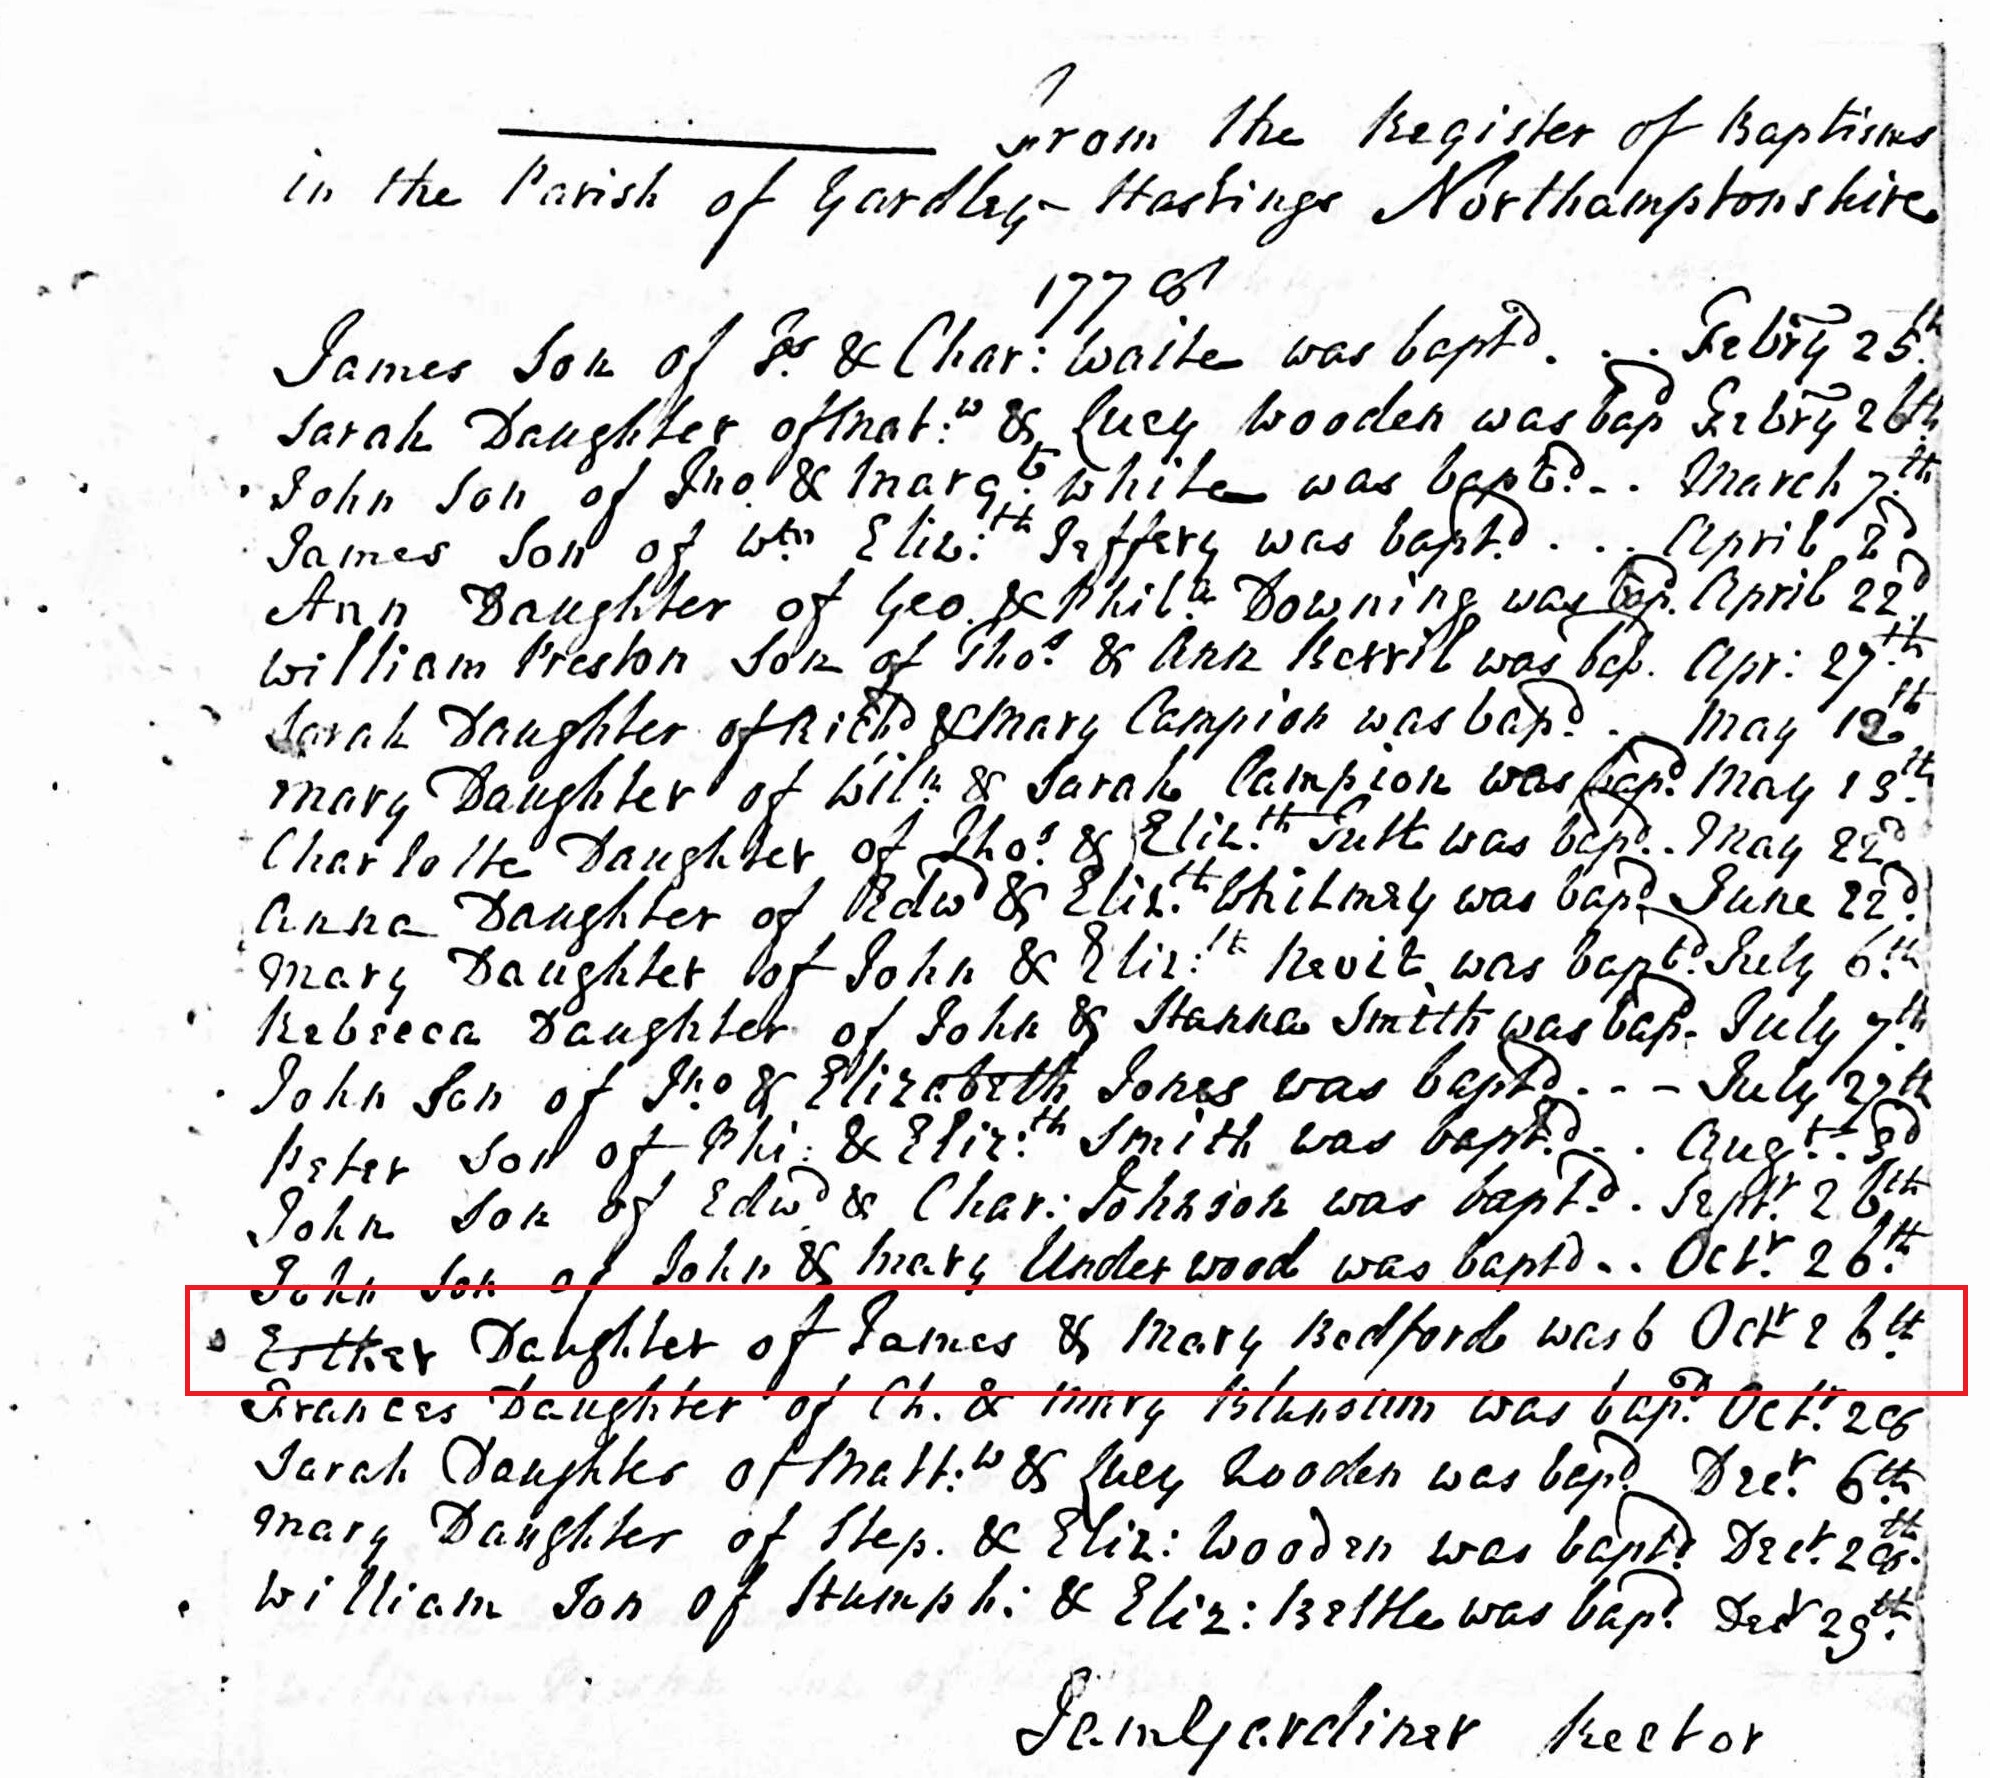 From the Register of Baptisms
in the Parish of Yardley-Hastings Northamptonshire
1778
James Son of & Char: Waite was bapt.d . . . Febry 25.th
Sarah Daughter of Mat:w & Lucy Wooden was bap.d Febry 26th
John Son of Jno. & Marg.t White was bapt.d - . March 7.th
James Son of Wm Eliz:th Jeffery was bapt.d . . . April 2d
Ann Daughter of Geo. & Phil.a Downing was bap. April 22d
William Preston Son of Thos. & Ann Kerril was bap. Apr: 27th
Sarah Daughter of Rich.d & Mary Campion was bap.d . . May 12th
Mary Daughter of Wil.m & Sarah Campion was bap.d May 13.th
Charlotte Daughter of Thos. & Eliz.th was bap.d . . May 22d
Anna Daughter of Edwd & Eliz.th Whitmey was bap.d June 22d.
Mary Daughter of John & Eliz:th Revit was bapt.d July 6.th
Rebecca Daughter of John & Hanna Smith was bap. July 7.th
John Son of Jno & Elizabeth Jones was bapt.d . - - July 27th
Peter Son of Phi: & Eliz:th Smith was bapt.d . . Aug.t 3d
John Son of Edw.d & Char: Johnson was bapt.d . Sept.r 26th
John Son of John & Mary Underwood was baptd . . Oct.r 26.th
Esther Daughter of James & Mary Bedford was b Octr 26.th
Frances Daughter of Ch. & Mary Blunsum was bap.d Oct.r 28
Sarah Daughter of Matt.w & Lucy Wooden was bap.d Dec.r 6.th
Mary Daughter of Step. & Eliz: Wooden was bapt.d Dec.r 28.th
William Son of Humph: & Eliz: Bettle was bap.d Decr 29.th
Jam Gardiner Rector